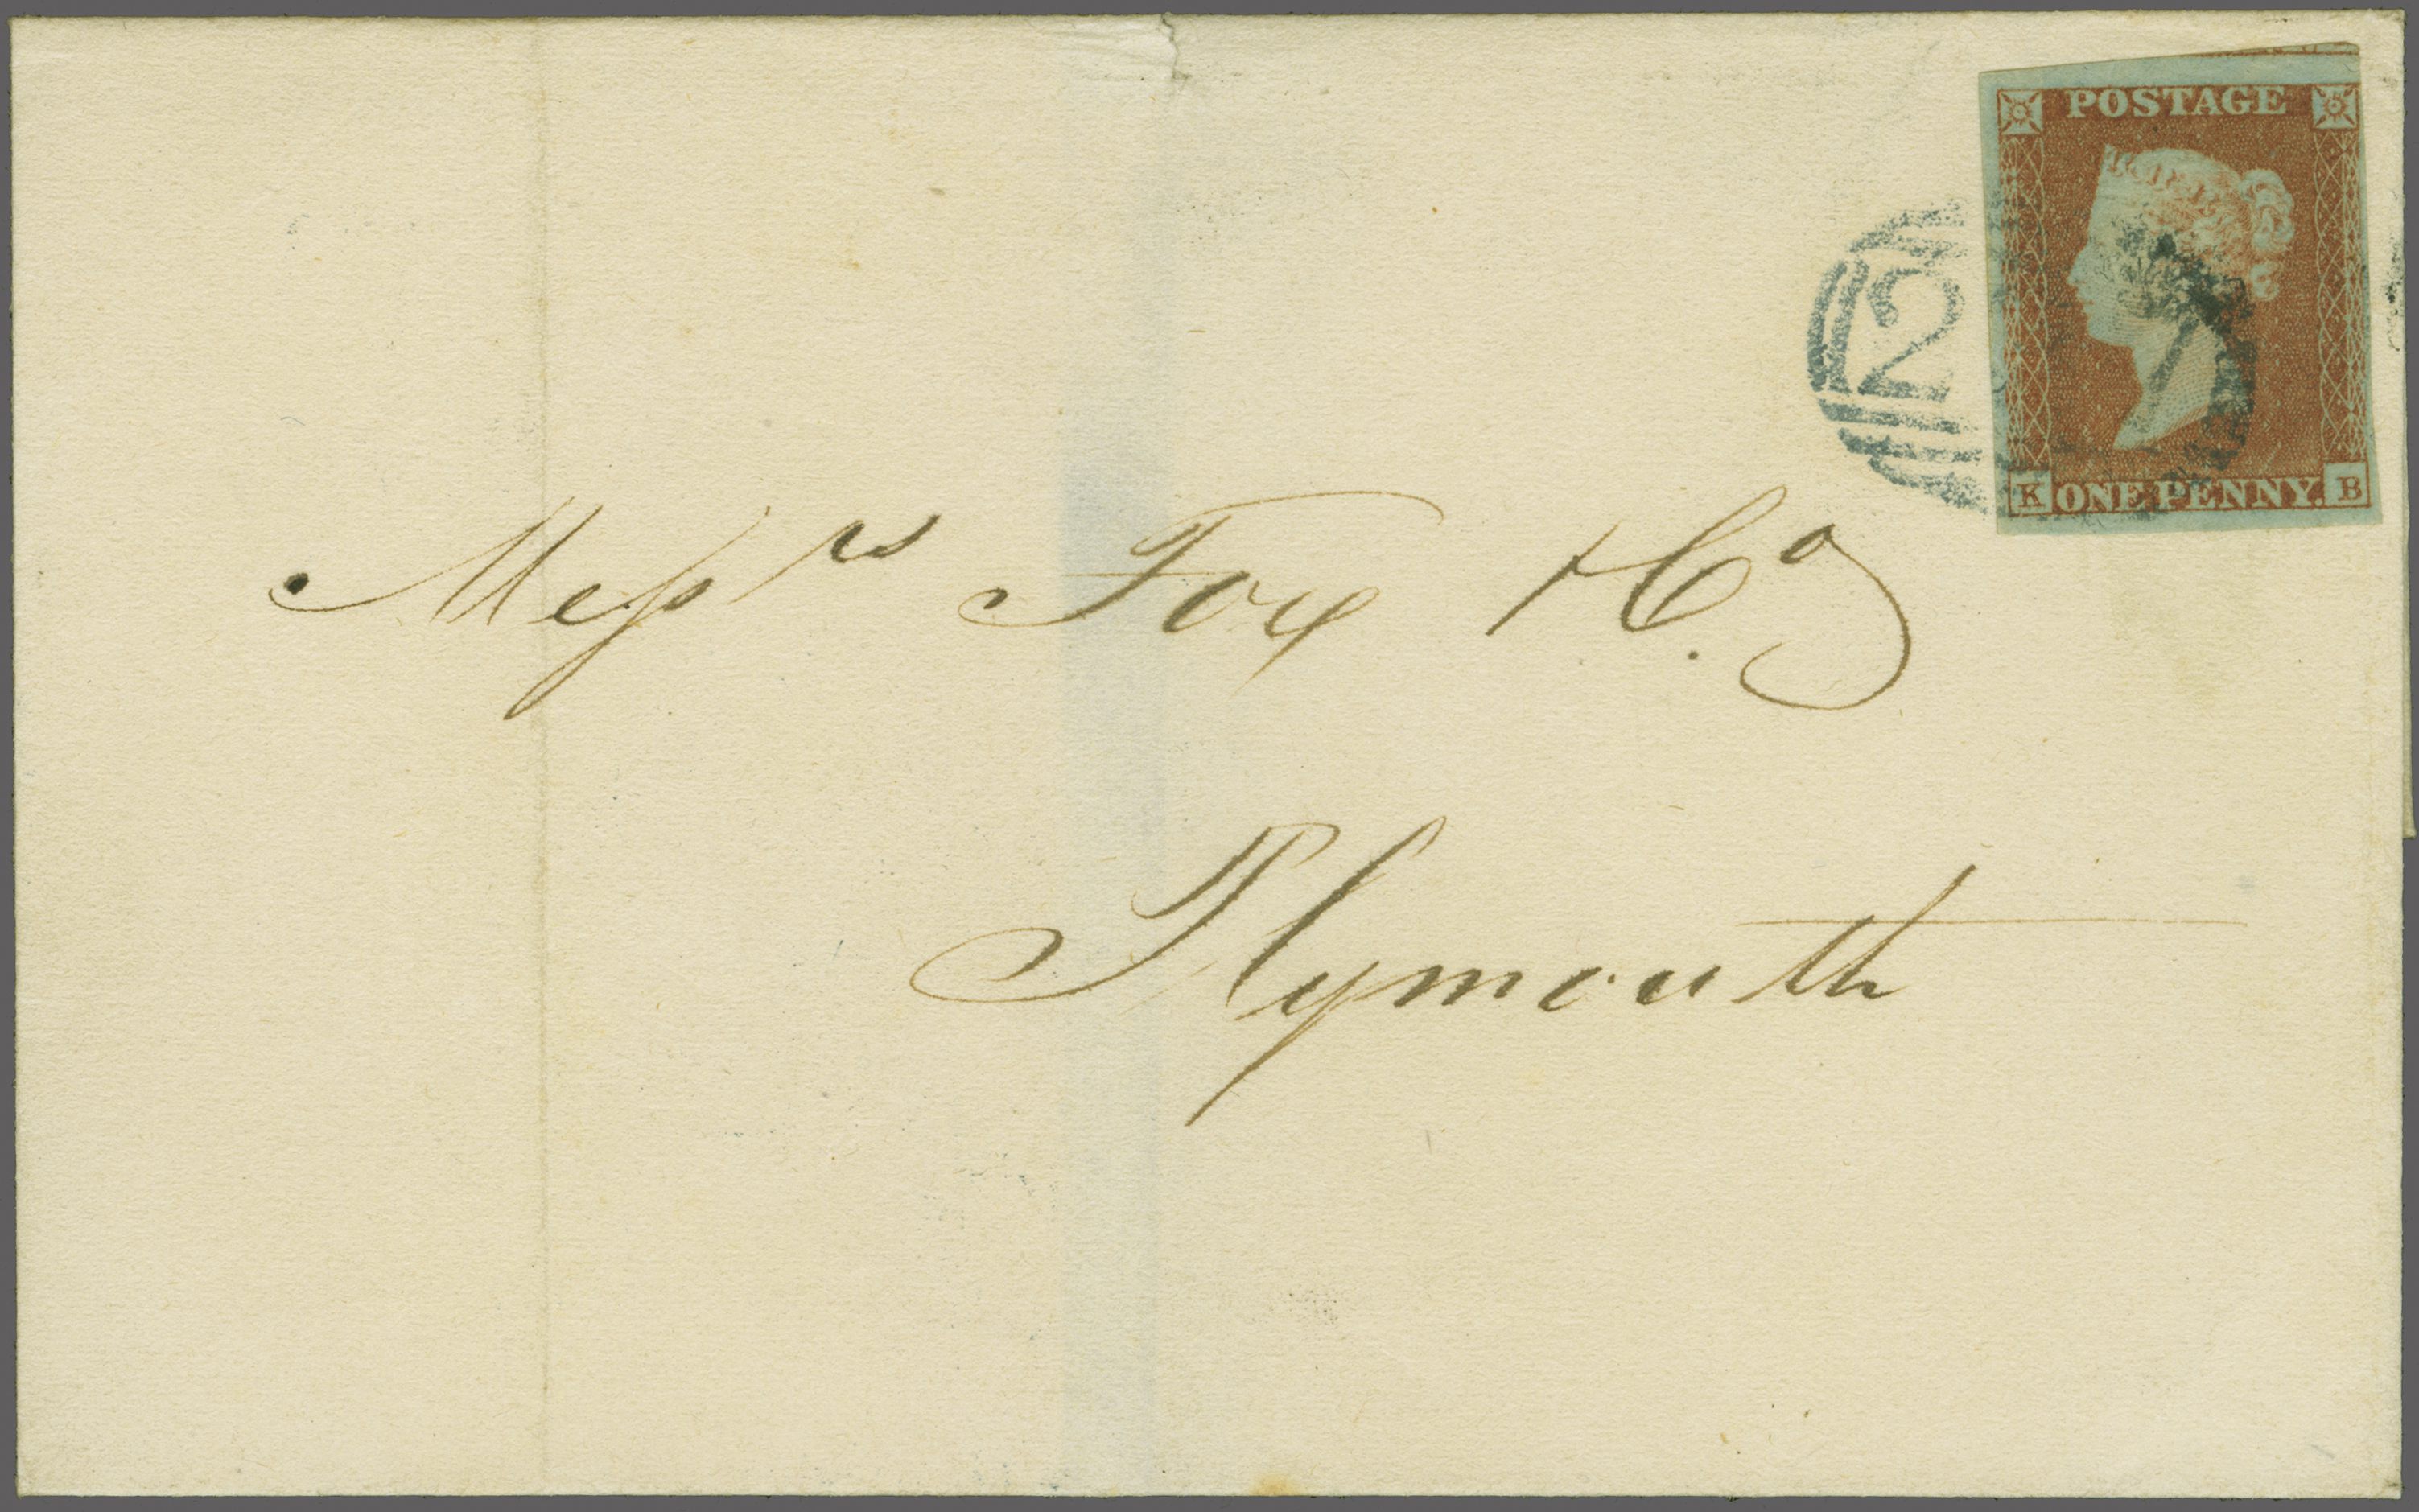 POSTAGE
2
K ONE PENNY. B
Messrs Fox & Co
Plymouth